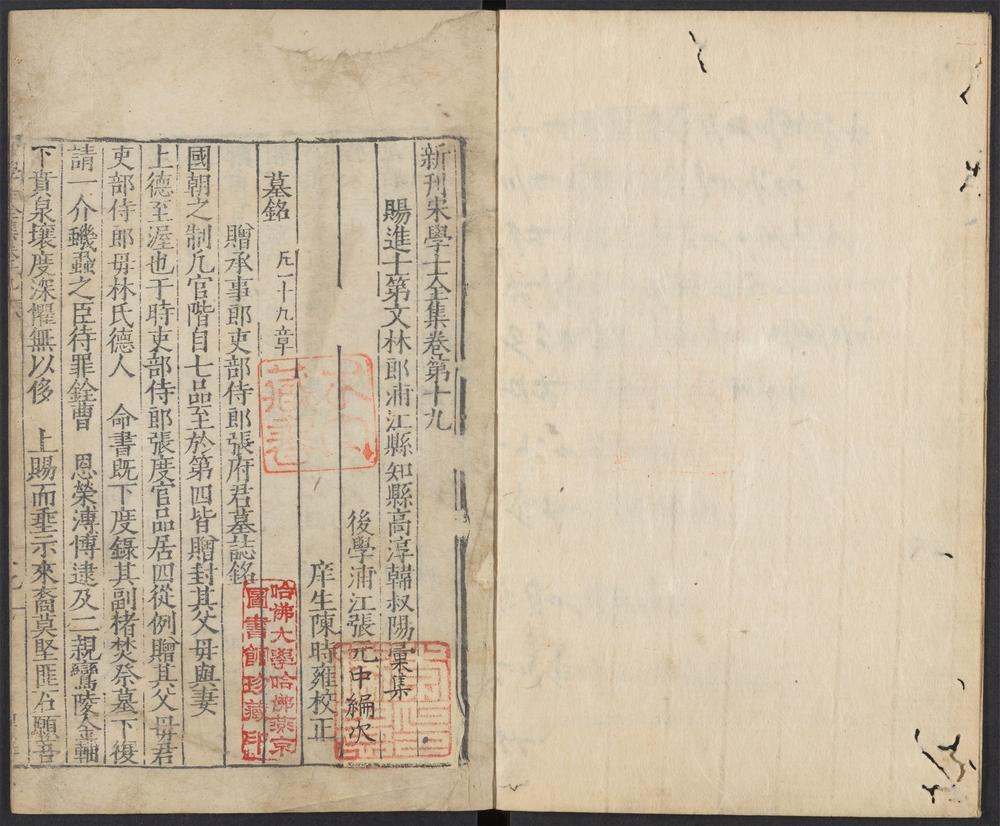 新刊宋學士全集卷第十九
賜進士第文林郎浦江縣知縣高淳韓叔陽彙集
後學浦江張元中編次
庠生陳時雍校正
墓銘 凡一十九章
贈承事郎吏部侍郎張府君墓誌銘
國朝之制凡官階自七品至於第四皆贈封其父毋與妻
上德至渥也于時吏部侍郎張度官品居四從例贈其父毋君
吏部侍郎毋林氏德人 命書既下度錄其副楮焚祭墓下復
請一介蟣蝨之臣待罪銓曹 恩榮溥愽逮及二親鸞陵金軸
下賁泉壤度深懼無以侈 上賜而垂示來裔莫堅匪石願吾
哈佛大學哈佛燕京
圖書館珍藏印